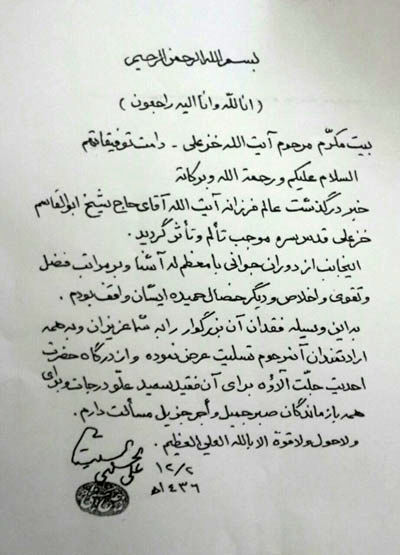 بسم الله الرحمن الرحیم
(انا لله وانا الیه راجعون)
بیت مکرّم مرحوم آیت الله خزعلی - دامت توفیقاتهم
السلام علیکم ورحمة الله وبرکاته
خبر درگذشت عالم فرزانه آیت الله آقای حاج شیخ ابوالقاسم
خزعلی قدس سره موجب تألم و تأثر گردید.
اینجانب از دوران جوانی با معظم له آشنا و بر مراتب فضل
وتقوی واخلاص ودیگر خصال حمیده ایشان واقف بودم.
به این وسیله فقدان آن بزرگوار را به شما عزیزان وبه همه
ارادتمندان آنمرحوم تسلیت عرض نموده واز درگاه حضرت
احدیت جلّت آلاؤه برای آن فقید سعید علّو درجات وبرای
همه بازماندگان صبر جمیل وأجر جزیل مسألت دارم.
ولاحول ولاقوة الا بالله العلی العظیم.
علی الحسینی السیستانی
۱۲/۲
۱۴۳۶ه